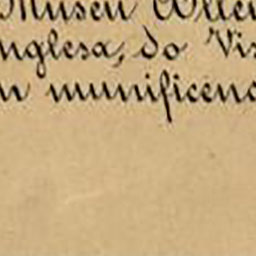 Museu Allen
nglesa, do Vis
munificenc